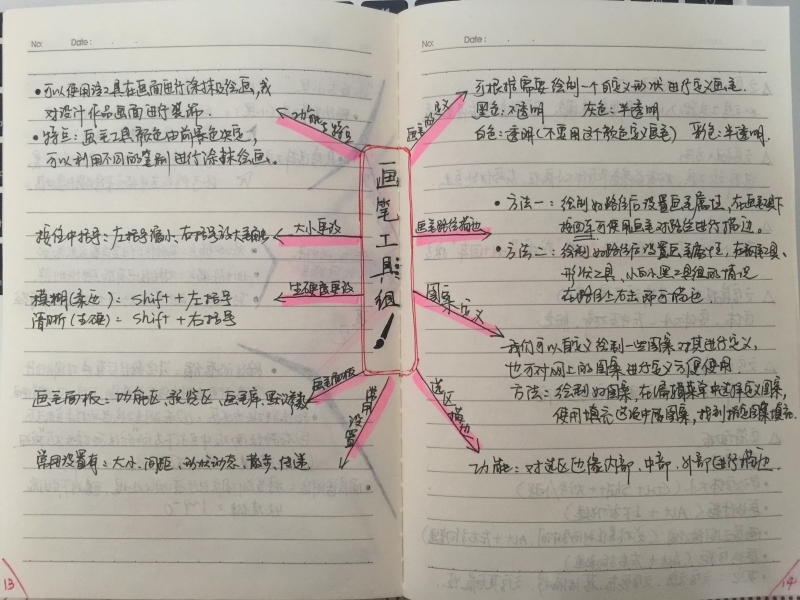 No:
Date:
• 可以使用该工具在画面进行涂抹及绘画,或
对设计作品画面进行装饰.
• 特点: 画笔工具颜色由前景色决定,
可以利用不同的笔刷进行涂抹绘画.
功能与特点
按住中括号: 左括号缩小、右括号放大
大小更改
模糊(柔边): shift + 左括号
清晰(生硬): shift + 右括号
生硬度更改
画笔面板: 功能区、预览区、画笔库、
画笔面板
常用设置有: 大小、间距、形状动态、散布、传递.
常用设置
13
画笔工具组
No:
Date:
画笔的定义
可根据需要绘制一个自定义形状进行定义画笔.
黑色: 不透明 灰色: 半透明
白色: 透明(不要用这个颜色定义画笔) 彩色: 半透明.
画笔路径描边
• 方法一: 绘制好路径后设置画笔属性, 在画笔工具下
按回车可使用画笔对路径进行描边.
• 方法二: 绘制好路径后设置画笔属性, 在工具、
形状工具、小白小黑工具组的情况
在路径上右击即可描边.
图案定义
我们可以自定义绘制一些图案对其进行定义,
也可对网上的图案进行定义方便使用
方法: 绘制好图案, 在编辑菜单中选择定义图案,
使用填充选项中图案, 找到指定图案填充.
选区描边
功能: 对选区边缘内部、中部、外部进行描边.
14